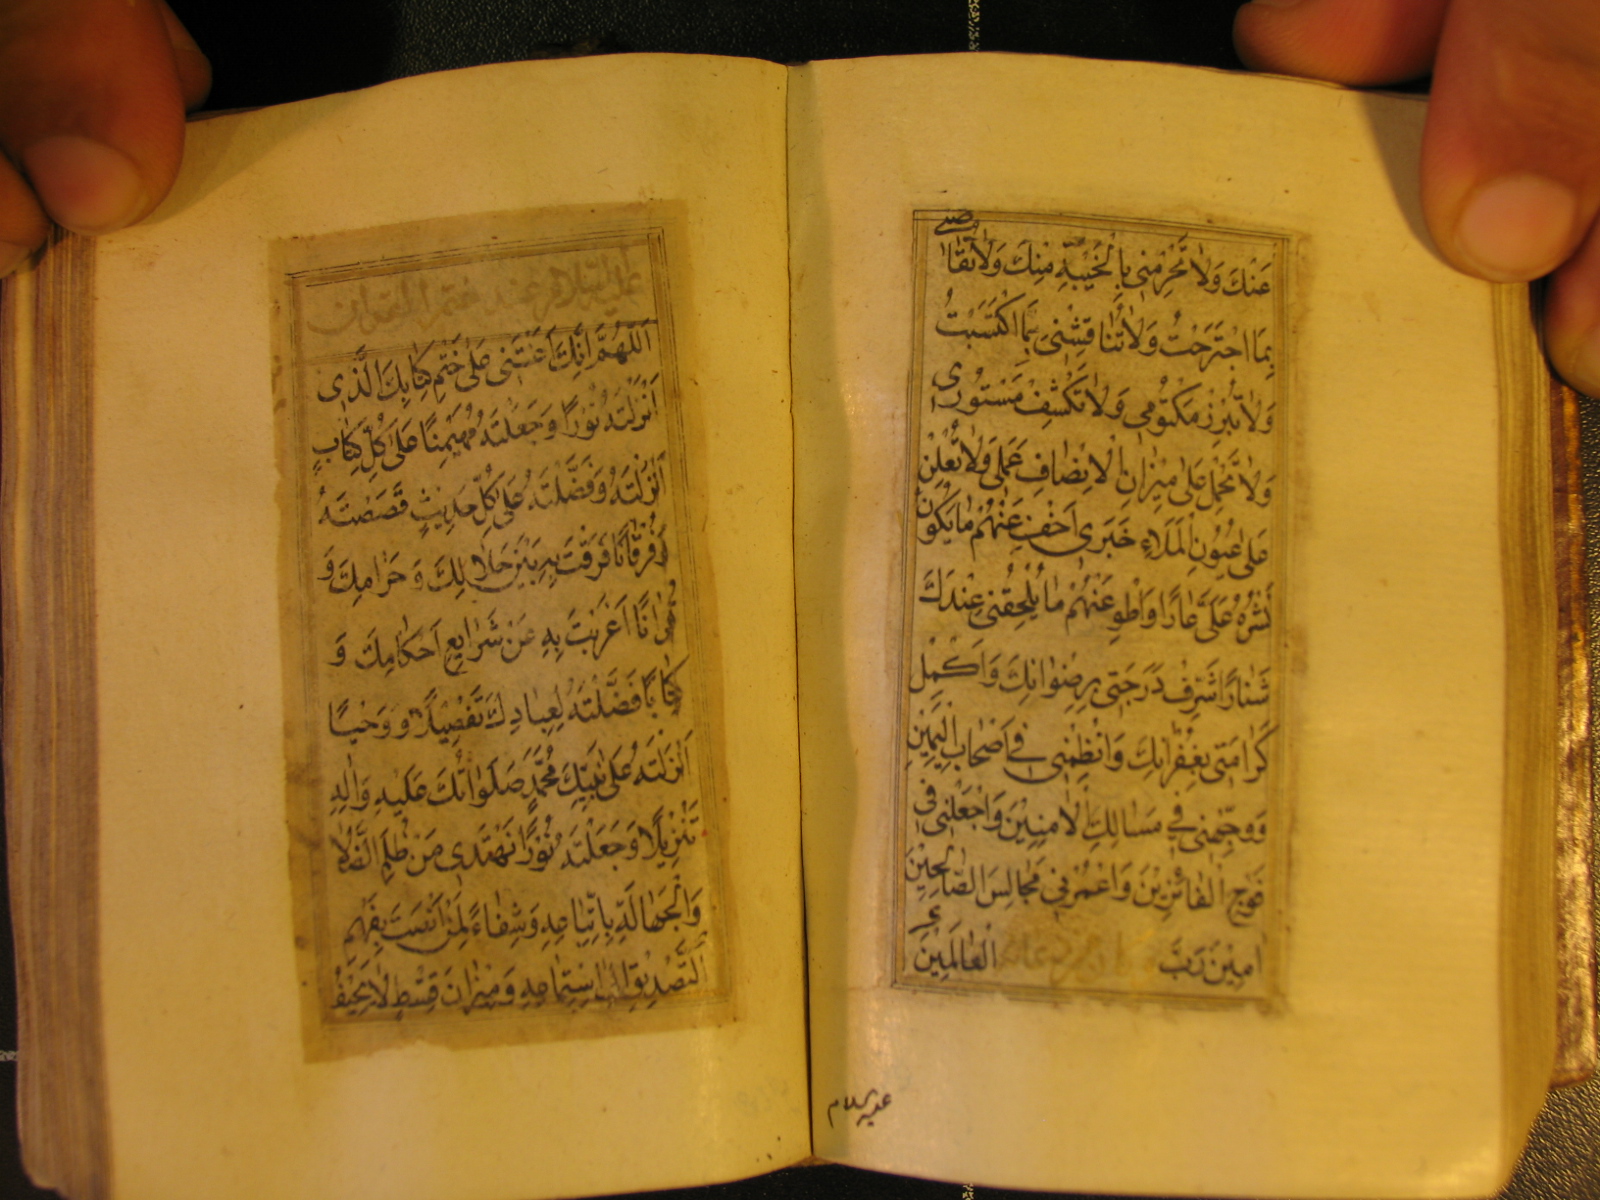 عَنْكَ وَلَا تَحْرِمْنِي بِالْخَيْبَةِ مِنْكَ وَلَا تُقَا
صّنِي
بِمَا اجْتَرَحْتُ وَلَا تُنَاقِشْنِي بِمَا اكْتَسَبْتُ
وَلَا تُبْرِزْ مَكْتُومِي وَلَا تَكْشِفْ مَسْتُورِي
وَلَا تَحْمِلْ عَلَى مِيزَانِ الْاِنْصَافِ عَمَلِي وَلَا تُعْلِنْ
عَلَى عُيُونِ الْمَلَاءِ خَبَرِي اَخْفِ عَنْهُمْ مَا يَكُونُ
نَشْرُهُ عَلَيَّ عَارًا وَاطْوِ عَنْهُمْ مَا يُلْحِقُنِي عِنْدَكَ
شَنَارًا شَرِّفْ دَرَجَتِي بِرِضْوَانِكَ وَاَكْمِلْ
كَرَامَتِي بِغُفْرَانِكَ وَانْظِمْنِي فِي اَصْحَابِ الْيَمِينِ
وَوَجِّهْنِي فِي مَسَالِكِ الْاٰمِنِينَ وَاجْعَلْنِي فِي
فَوْجِ الْفَائِزِينَ وَاعْمُرْ بِي مَجَالِسَ الصَّالِحِينَ
اٰمِينَ رَبَّ الْعَالَمِينَ
عليه السلام
عليه السلام عند ختم القران
اَللّٰهُمَّ اِنَّكَ اَعَنْتَنِي عَلَى خَتْمِ كِتَابِكَ الَّذِي
اَنْزَلْتَهُ نُورًا وَجَعَلْتَهُ مُهَيْمِنًا عَلَى كُلِّ كِتَابٍ
اَنْزَلْتَهُ وَفَضَّلْتَهُ عَلَى كُلِّ حَدِيثٍ قَصَصْتَهُ
وَفُرْقَانًا فَرَقْتَ بِهِ بَيْنَ حَلَالِكَ وَحَرَامِكَ وَ
قُرْاٰنًا اَعْرَبْتَ بِهِ عَنْ شَرَايِعِ اَحْكَامِكَ وَ
كِتَابًا فَصَّلْتَهُ لِعِبَادِكَ تَفْصِيلًا وَوَحْيًا
اَنْزَلْتَهُ عَلَى نَبِيِّكَ مُحَمَّدٍ صَلَوَاتُكَ عَلَيْهِ وَاٰلِهِ
تَنْزِيلًا وَجَعَلْتَهُ نُورًا نَهْتَدِي مِنْ ظُلَمِ الضَّلَالَةِ
وَالْجَهَالَةِ بِاتِّبَاعِهِ وَشِفَاءً لِمَنْ اَنْصَتَ بِفَهْمِ
التَّصْدِيقِ اِلَى اسْتِمَاعِهِ وَمِيزَانَ قِسْطٍ لَا يَحِيفُ